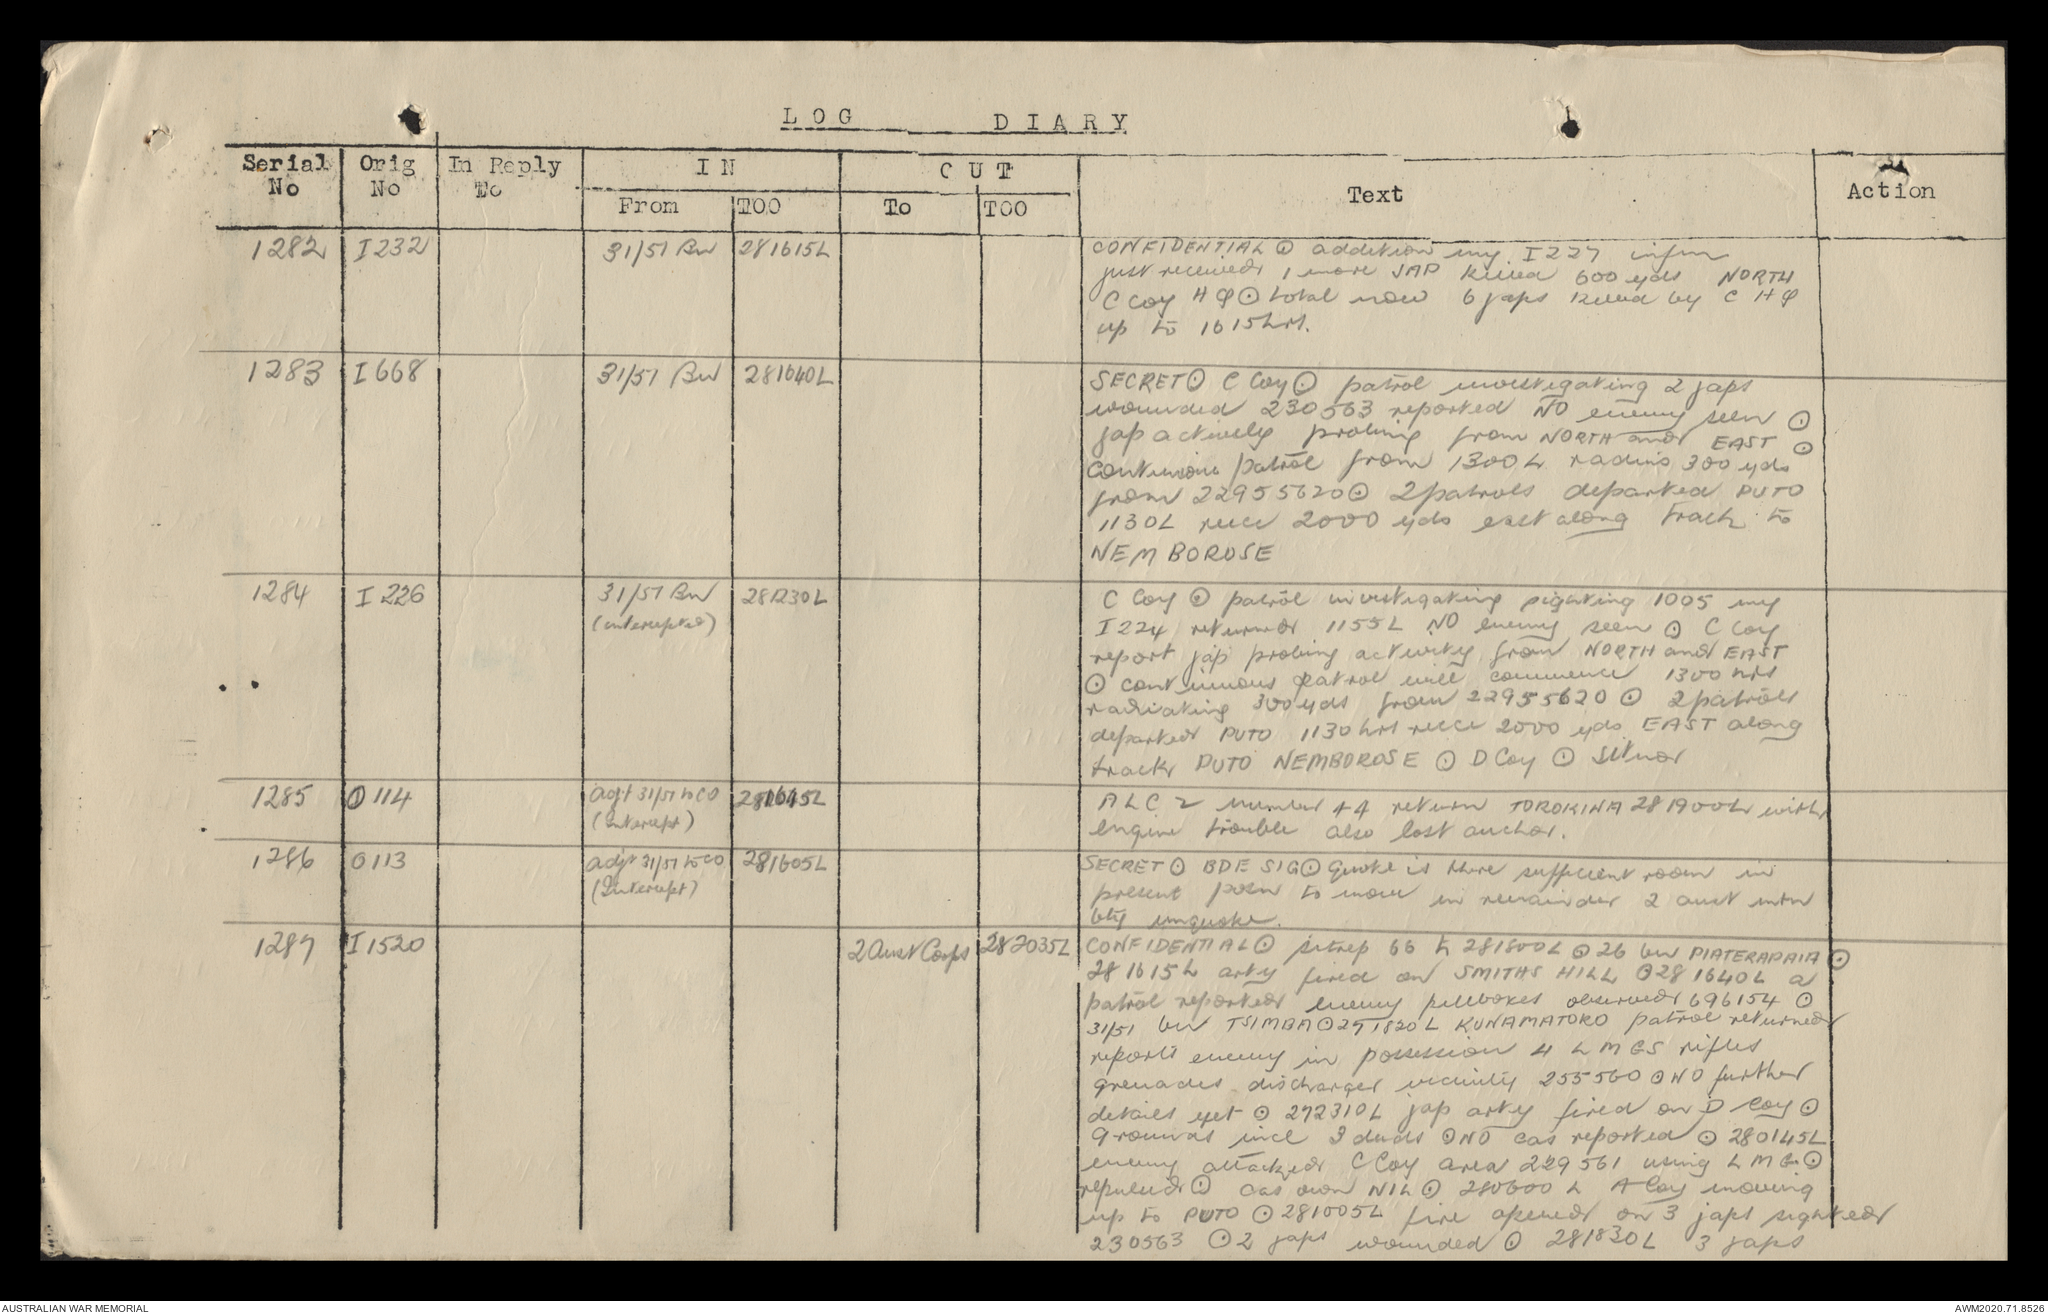 LOG DIARY
Serial No Orig No In Reply To IN OUT Text Action
From TOO To TOO
1282 I232 31/51 Bn 281615L CONFIDENTIAL ⊙ addition my I227 infm
just received 1 more JAP killed 600 yds NORTH
C Coy HQ ⊙ total now 6 japs killed by C HQ
up to 1615hrs.
1283 I668 31/51 Bn 281640L SECRET ⊙ C Coy ⊙ patrol investigating 2 japs
wounded 230563 reported NO enemy seen ⊙
jap actively probing from NORTH and EAST ⊙
continuous patrol from 1300L radius 300 yds
from 22955620 ⊙ 2 patrols departed PUTO
1130L recce 2000 yds east along track to
NEMBOROSE
1284 I226 31/51 Bn (intercepted) 281230L C Coy ⊙ patrol investigating sighting 1005 my
I224 returned 1155L NO enemy seen ⊙ C Coy
report jap probing activity from NORTH and EAST
⊙ continuous patrol will commence 1300 hrs
radiating 300 yds from 22955620 ⊙ 2 patrols
departed PUTO 1130 hrs recce 2000 yds EAST along
track PUTO NEMBOROSE ⊙ D Coy ⊙ Sitnor
1285 O114 adjt 31/51 to CO (Intercept) 281645L ALC 2 number 44 return TOROKINA 281900L with
engine trouble also lost anchor.
1286 O113 adjt 31/51 to CO (Intercept) 281605L SECRET ⊙ BDE SIG ⊙ Quote is there sufficient room in
present posn to move in remainder 2 aust mtn
bty unquote.
1287 I1520 2 Aust Corps 282035L CONFIDENTIAL ⊙ sitrep 66 to 281800L ⊙ 26 bn PIATERAPAIA ⊙
281615L arty fired on SMITHS HILL ⊙ 281640L a
patrol reported enemy pillboxes observed 696154 ⊙
31/51 bn TSIMBA ⊙ 271820L KUNAMATORO patrol returned
reports enemy in possession 4 LMGS rifles
grenades discharger vicinity 255560 ⊙ NO further
details yet ⊙ 272310L jap arty fired on D Coy ⊙
9 rounds incl 3 duds ⊙ NO cas reported ⊙ 280145L
enemy attacked C Coy area 229561 using LMG ⊙
repulsed ⊙ cas own NIL ⊙ 280600L A Coy moving
up to PUTO ⊙ 281005L fire opened on 3 japs sighted
230563 ⊙ 2 japs wounded ⊙ 281830L 3 japs
AUSTRALIAN WAR MEMORIAL AWM2020.71.8526